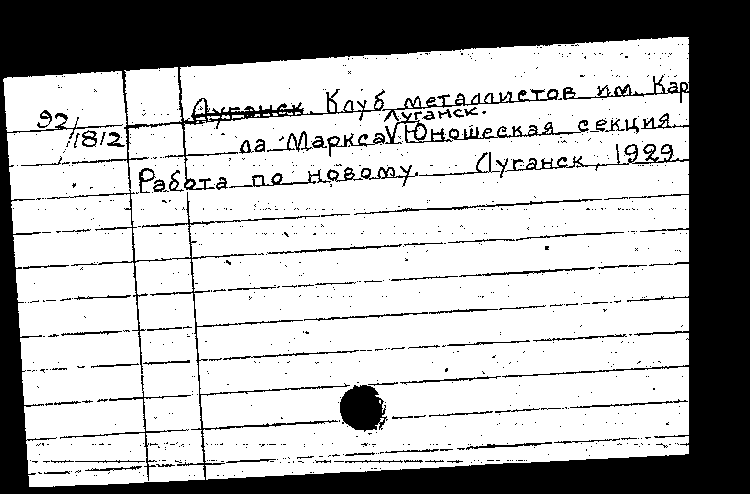 92/1812
Луганск. Клуб металлистов им. Кар
Луганск.
ла Маркса. Юношеская секция.
Работа по новому. Луганск, 1929.